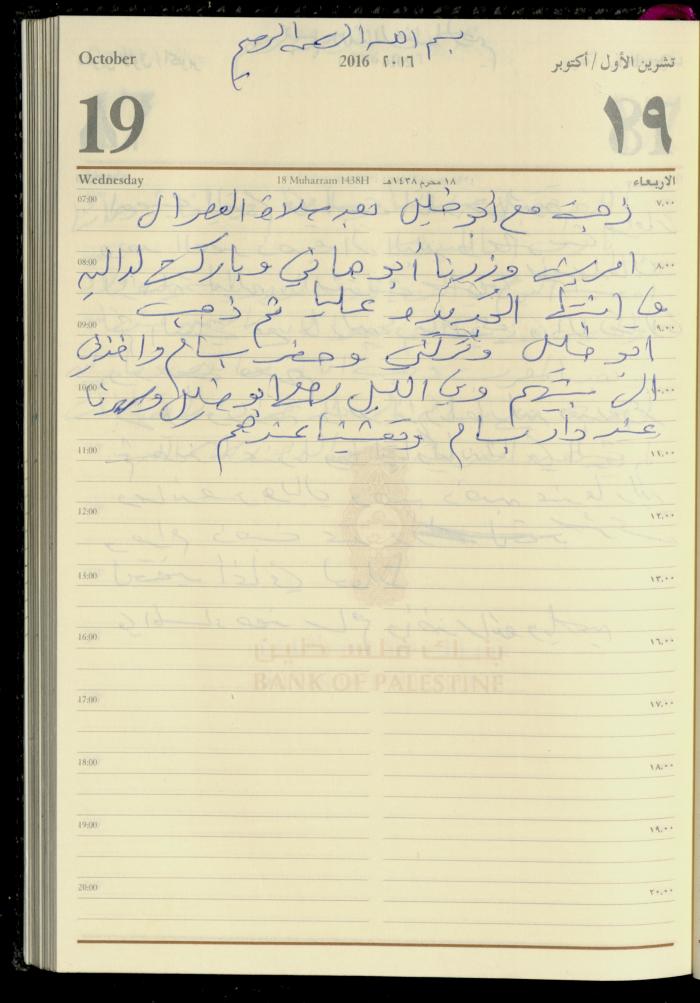 بسم الله الرحمن الرحيم
October 2016 ٢٠١٦ تشرين الأول / أكتوبر
19 ١٩
Wednesday 18 Muharram 1438H ١٨ محرم ١٤٣٨هـ الاربعاء
07:00 ذهبت مع ابو خليل بعد صلاة العصر ال ٧,٠٠
08:00 امريش وزرنا أبو هاني وباركت لدالين ٨,٠٠
في ابنتها الجديدة عليا ثم ذهب
09:00 ٩,٠٠
ابو خليل وتركني وحضر بسام واخذني
10:00 الى بيتهم وفي الليل رجع ابو خليل وسهرنا ١٠,٠٠
عند دار بسام وتعشينا عندهم
11:00 ١١,٠٠
12:00 ١٢,٠٠
13:00 ١٣,٠٠
16:00 ١٦,٠٠
بنك فلسطين
BANK OF PALESTINE
17:00 ١٧,٠٠
18:00 ١٨,٠٠
19:00 ١٩,٠٠
20:00 ٢٠,٠٠